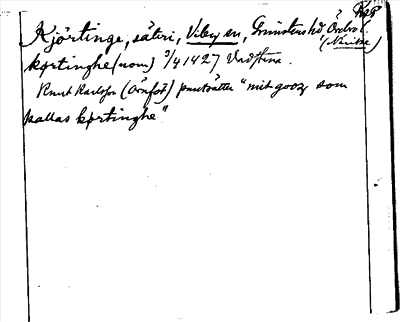 Kjörtinge, säteri, Viby sn, Grimstens hd, Örebro l.
(Närike)
kørtinghe (nom) 3/4 1427 Vadstena.
Knut Karlsson (Örnfot) pantsätter "mit gooz som
kallas kørtinghe"